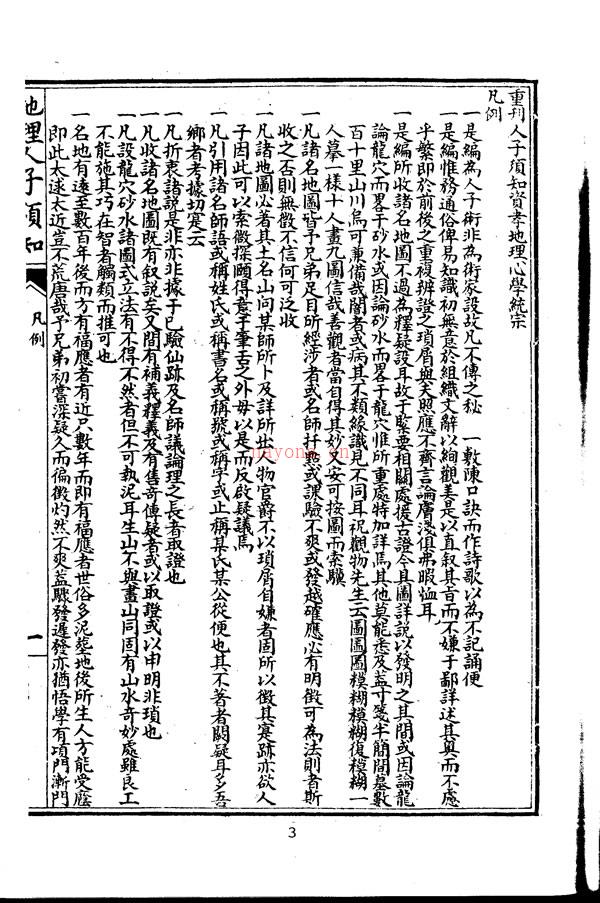 重刊人子須知資孝地理心學統宗
凡例
一是編為人子術非為術家設故凡不傳之秘一敷陳口訣而作詩歌以為不記誦便
一是編惟務通俗俾易知識初無意於組織文辭以絢觀美是以直叙其旨而不嫌于鄙詳述其真而不慮
乎繁即於前後之重複辨證之瑣屑與夫照應不齊言論膚淺俱弗暇恤耳
一是編所收諸名地圖不過為釋疑設耳故于緊要相關處援古證今具圖詳說以發明之其間或因論龍
論龍穴而畧于砂水或因論砂水而畧于龍穴惟所重處特加詳焉其他莫能悉及蓋寸箋半簡間墓數
百十里山川烏可兼備哉閱者或病其不類緣識見不同耳祝觀物先生云圖圖圖模糊模糊復模糊一
人摹一樣十人畫九圖信哉善觀者當自得其妙又安可按圖而索驥
一凡諸名地圖皆予兄弟足目所經涉者或名師扦點或課驗不爽或發越確應必有明徵可為法則者斯
收之否則無徵不信何可泛收
一凡諸地圖必著其土名山向某師所卜及詳所出人物官爵不以瑣屑自嫌者固所以徵其寔跡亦欲人
子因此可以索徵探頤得意于筆舌之外毋以是而反啟疑議焉
一凡引用諸名師語或稱姓氏或稱書名或稱號或稱字或止稱其氏某公從便也其不著者闕疑耳多吾
鄉者考據切寔云
一凡折衷諸說是非亦非據于已驗仙跡及名師議論理之長者取證也
一凡收諸名地圖既有叙說矣又間有補義釋義及有售奇傳疑者或以取證或以申明非瑣也
一凡設龍穴砂水諸圖式立法有不得不然者但不可執泥耳生山不與畫山同固有山水奇妙處雖良工
不能施其巧在智者觸類而推可也
一名地有遠至數百年後而方有福應者有近只數年而即有福應者世俗多泥塟地後所生人方能受廕
即此太逑太近豈不荒唐哉予兄弟初嘗深疑久而徧徵灼然不爽蓋驟發遲發亦猶悟學有頓門漸門
地理人子須知
凡例
一
nayona.cn
3